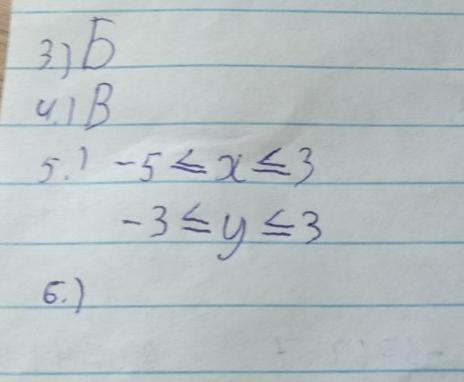 3.) Б
4.) В
5.) -5 ≤ x ≤ 3
-3 ≤ y ≤ 3
6.)